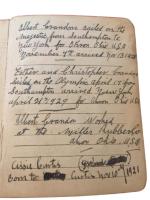 Albert Crandon sailed on the
Majestic from Southampton to
New York for Akron Ohio USA
November 7th arrived Nov 13 1923
Esther and Christopher Crandon
sailed on the Olympic April 17 from
Southampton arrived New York
April 24 1929 for Akron Ohio USA
Albert Crandon Worked
at the Miller Rubber Co
Akron Ohio USA
Cissie Curtis
born to Curtis Nov 10th 1921